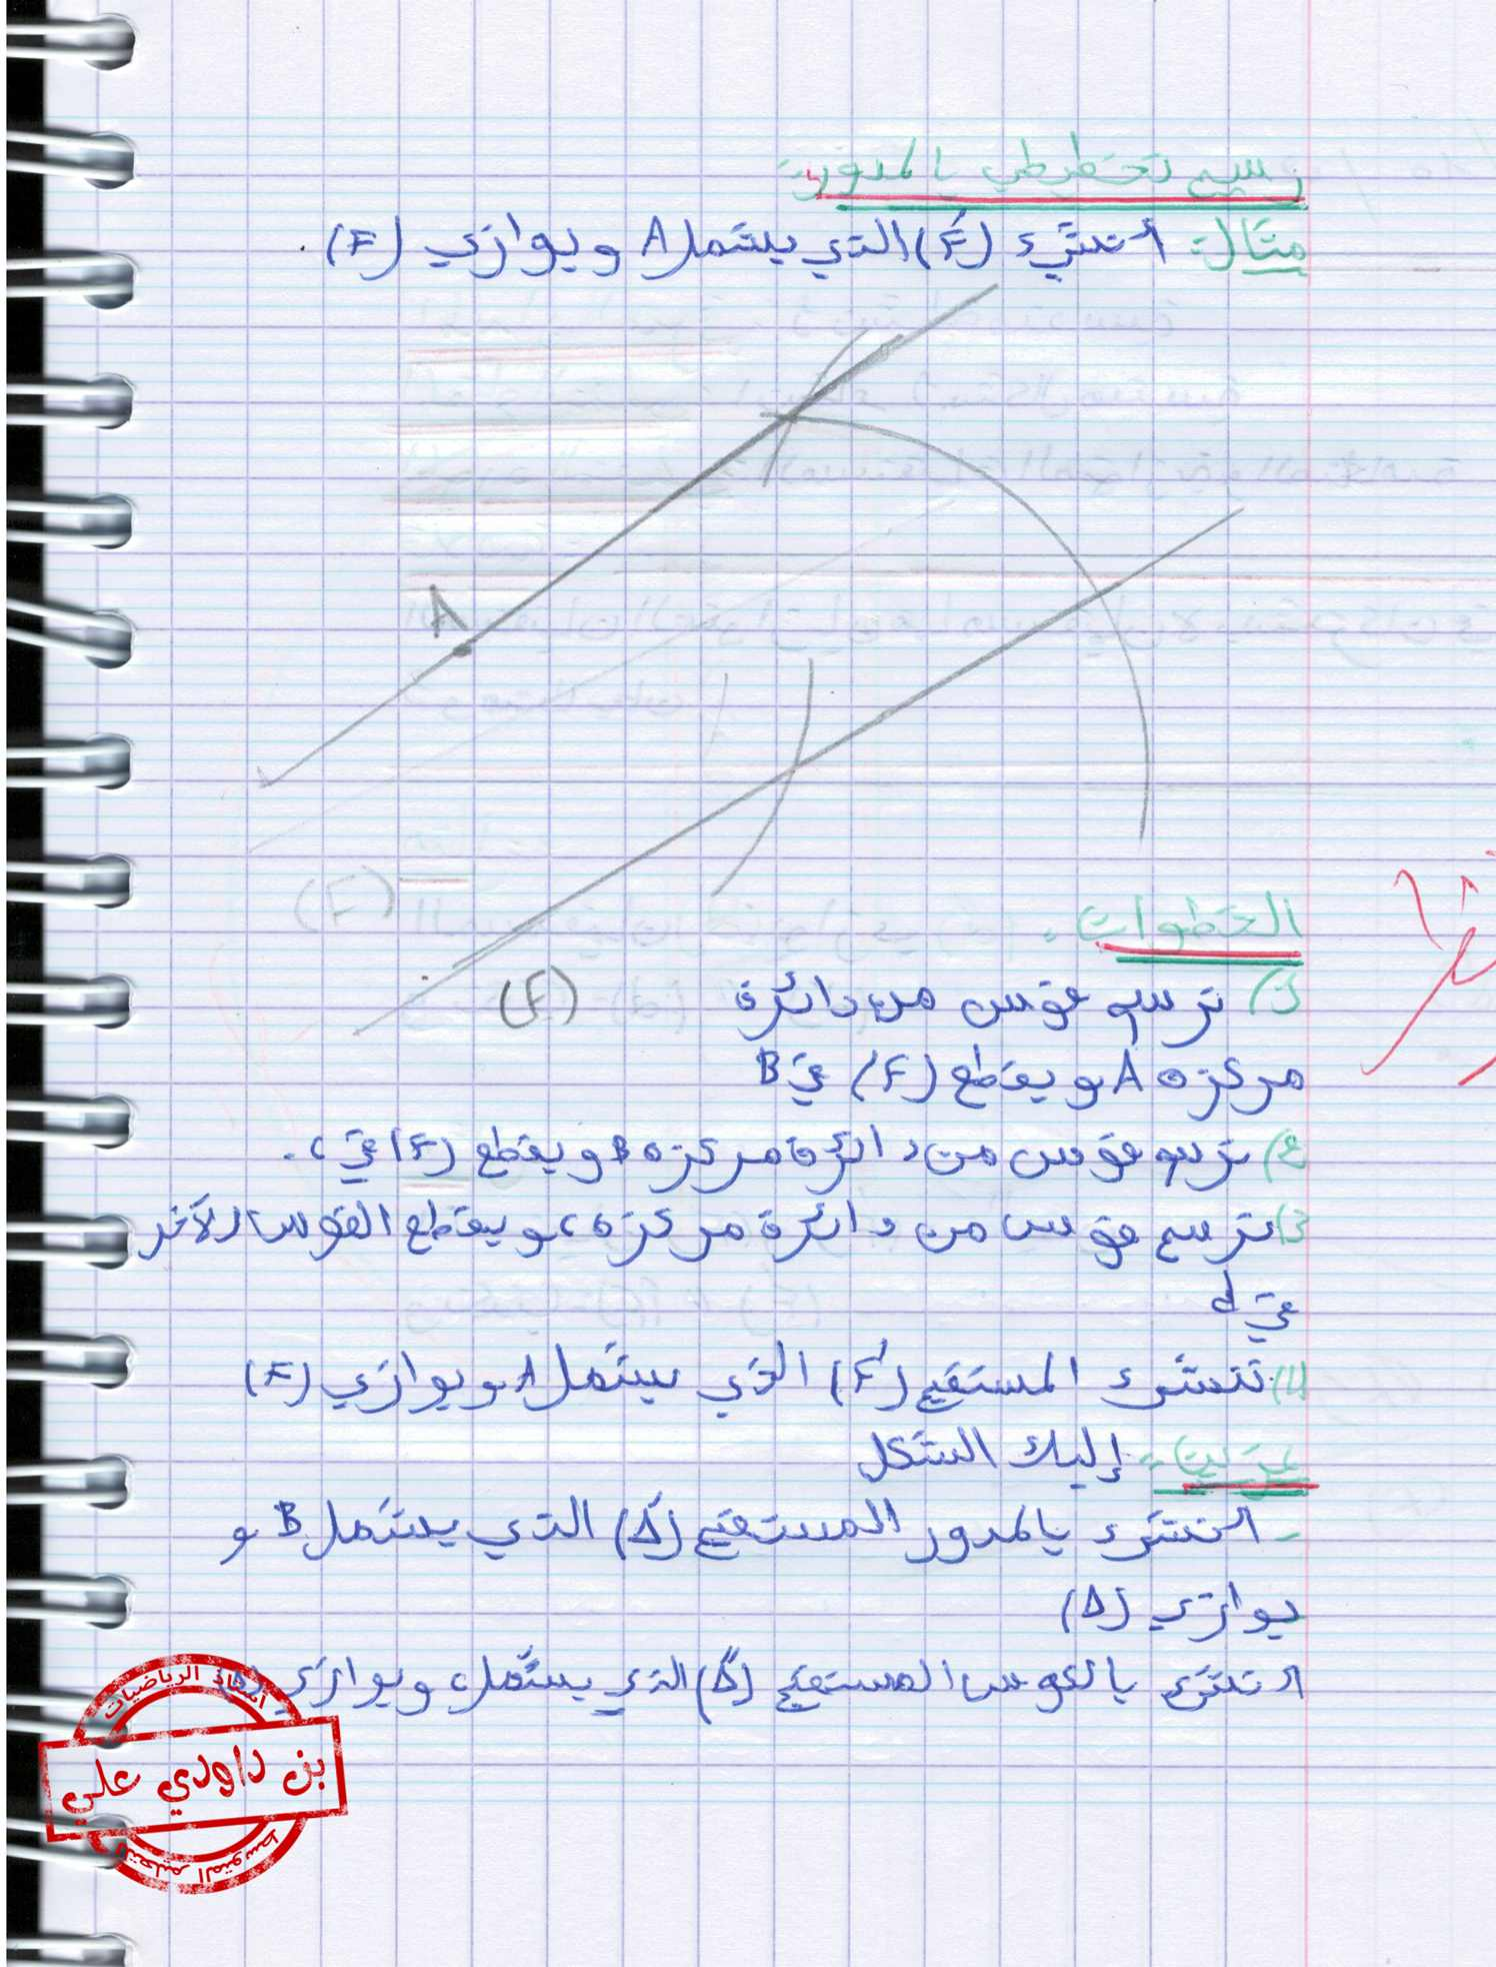 رسم تخطيطي بالمدور:
مثال: أنشئ (F') الذي يشمل A و يوازي (F).
A
(F)
(F)
الخطوات:
1) نرسم قوس من دائرة
مركزه A و يقطع (F) في B
2) نرسم قوس من دائرة مركزه B و يقطع (F) في c.
3) نرسم قوس من دائرة مركزه c و يقطع القوس الآخر
في d
4) ننشئ المستقيم (F') الذي يشمل A و يوازي (F)
تمرين: إليك الشكل
- انشئ بالمدور المستقيم (Δ') الذي يشمل B و
يوازي (Δ)
انشئ بالكوس المستقيم (Δ") الذي يشمل c و يوازي (Δ)
أستاذ الرياضيات
بن داودي علي
التعليم المتوسط